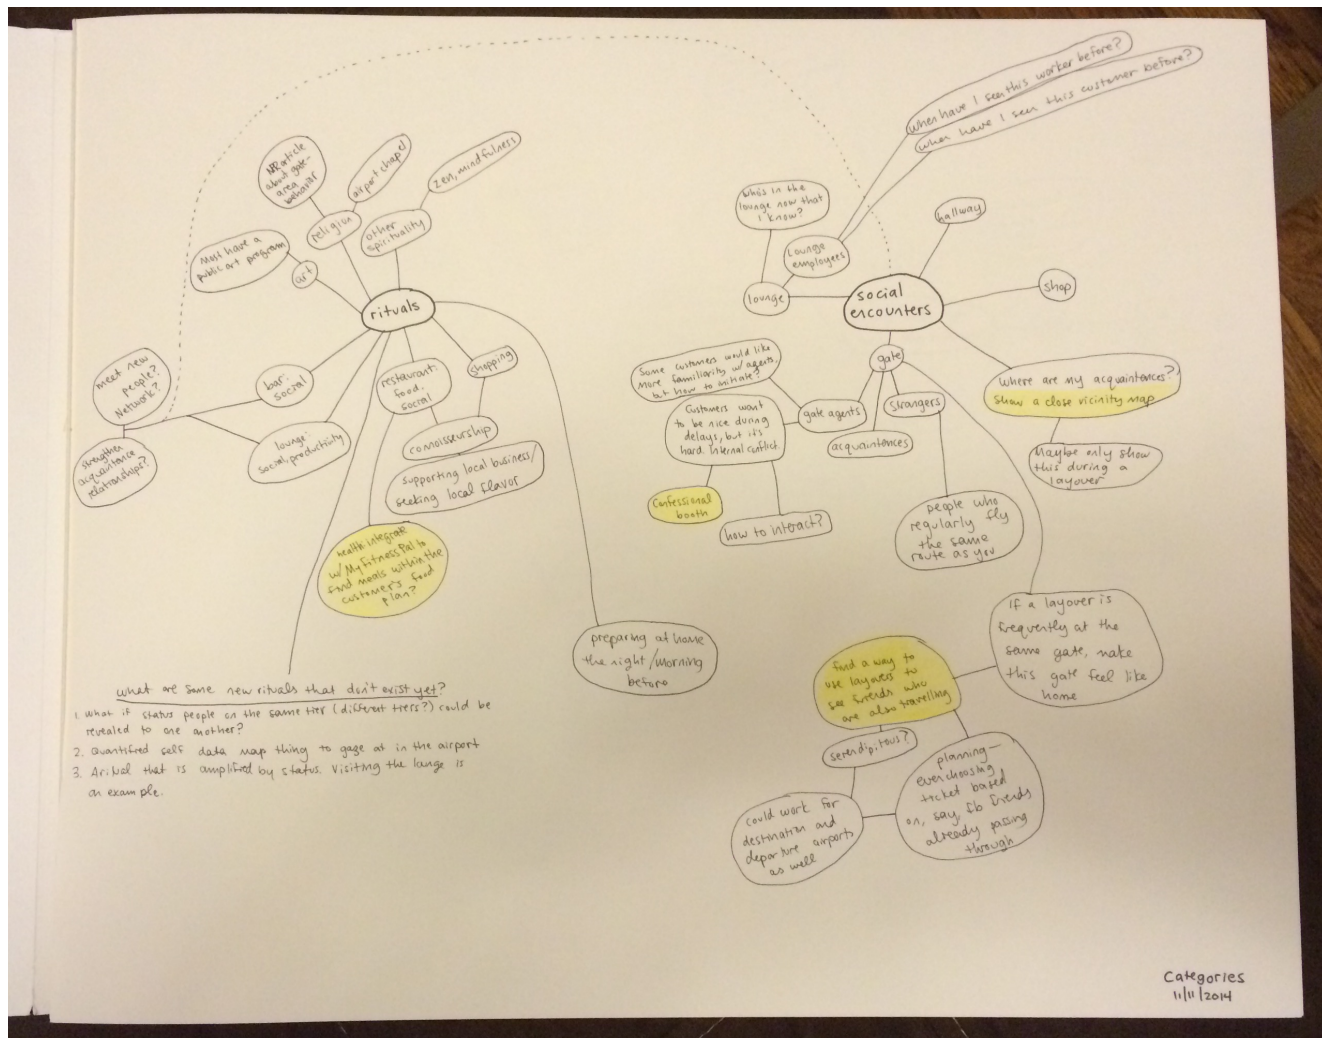 when have I seen this worker before?
when have I seen this customer before?
NPR article
about gate-
area
behavior
airport chapel
zen, mindfulness
religion
other
spirituality
Most have a
public art program
art
rituals
meet new
people?
Network?
strengthen
acquaintence
relationships?
bar:
social
lounge:
social, productivity
restaurant:
food,
social
shopping
connoisseurship
supporting local business/
seeking local flavor
health: integrate
w/ MyFitnessPal to
find meals within the
customer's food
plan?
preparing at home
the night/morning
before
what are some new rituals that don't exist yet?
1. What if status people on the same tier (different tiers?) could be
revealed to one another?
2. Quantified self data map thing to gaze at in the airport
3. Arival that is amplified by status. Visiting the lounge is
an example.
Who's in the
lounge now that
I know?
Lounge
employees
lounge
hallway
social
encounters
shop
gate
Where are my acquaintences?
Show a close vicinity map
Maybe only show
this during a
layover
Some customers would like
more familiarity w/ agents,
but how to initiate?
Customers want
to be nice during
delays, but it's
hard. Internal conflict.
gate agents
strangers
acquaintences
Confessional
booth
how to interact?
people who
regularly fly
the same
route as you
If a layover is
frequently at the
same gate, make
this gate feel like
home
find a way to
use layovers to
see friends who
are also travelling
serendipitous?
planning—
even choosing
ticket based
on, say, fb friends
already passing
through
could work for
destination and
departure airports
as well
Categories
11/11/2014